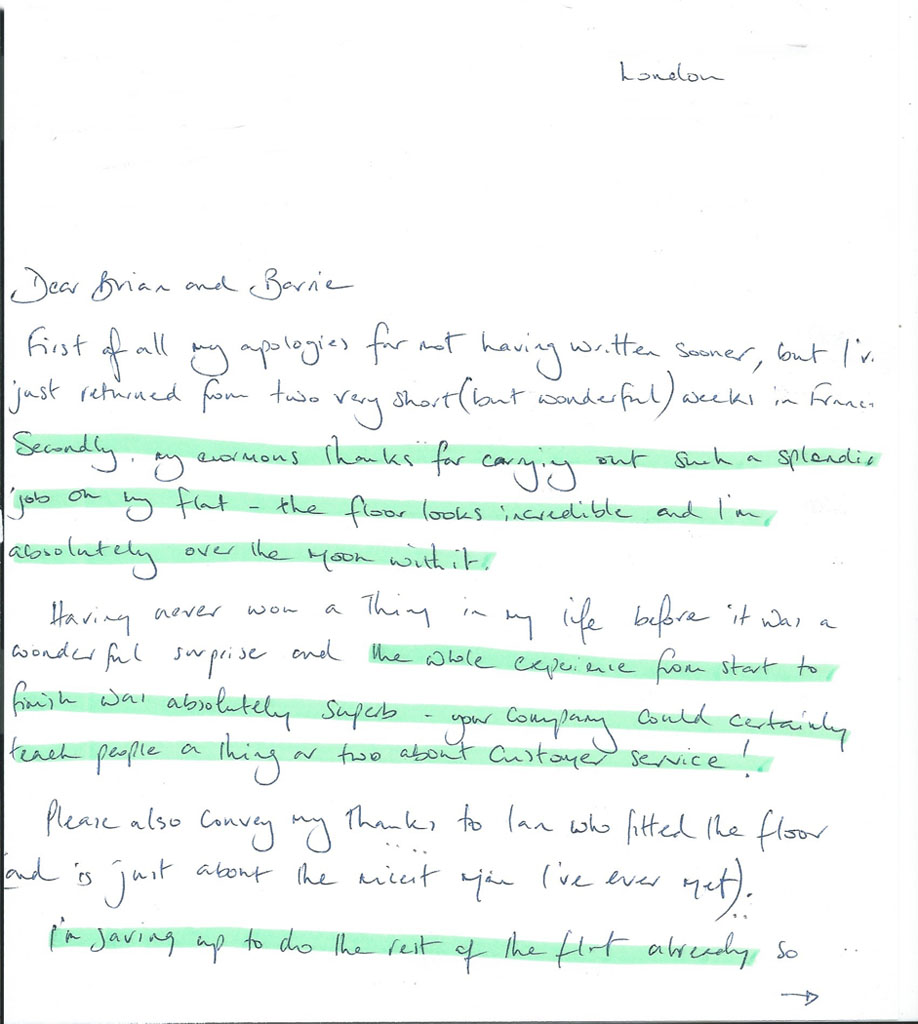 London
Dear Brian and Barrie
First of all my apologies for not having written sooner, but I'v
just returned from two very short (but wonderful) weeks in France
Secondly, my enormous thanks for carrying out such a splendid
job on my flat - the floor looks incredible and I'm
absolutely over the moon with it.
Having never won a thing in my life before it was a
wonderful surprise and the whole experience from start to
finish was absolutely superb - your company could certainly
teach people a thing or two about customer service!
Please also convey my thanks to Ian who fitted the floor
and is just about the nicest man I've ever met).
I'm saving up to do the rest of the flat already so
→